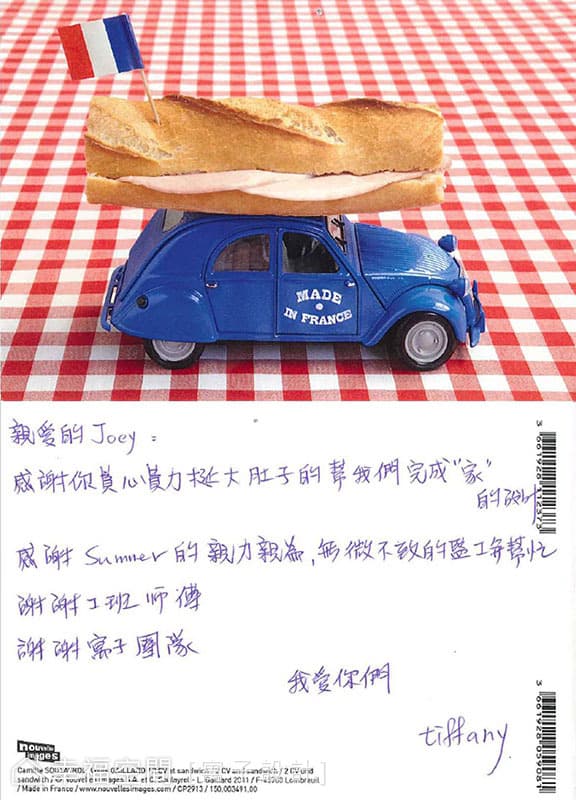 MADE
IN FRANCE
親愛的 Joey:
感謝你費心費力挺大肚子的幫我們完成"家"
的設計
感謝 Summer 的親力親為,無微不致的監工与幫忙
謝謝工班師傅
謝謝寓子團隊
我愛你們
tiffany
3 661928 112373
3 661928 059081
nouvelles
images
幸福空間「寓子設計」
sandwich / © Nouvelles Images S.A. et C. Soulayrol - L. Gaillard 2011 / F-45700 Lombreuil
/ Made in France / www.nouvellesimages.com / CP2913 / 150.003491.00